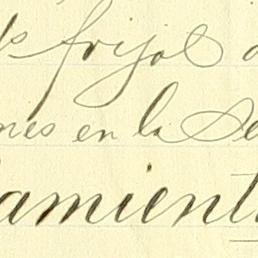 frijol
nes en la Se
amient